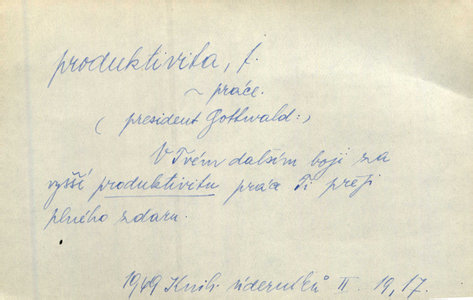 produktivita, f.
~ práce.
(president Gottwald:)
V Tvém dalším boji za
vyšší produktivitu práce Ti přeji
plného zdaru.
1949 Knih. úderníků II. 19, 17.